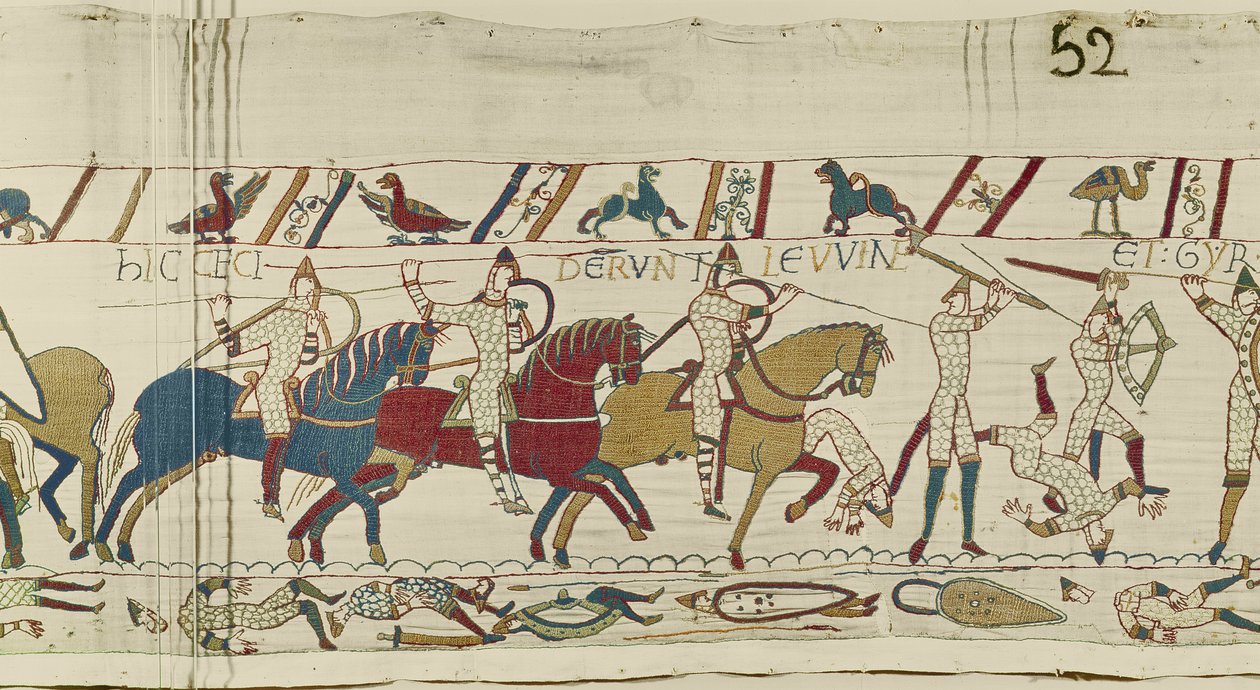 52
hIC CECIDERVNT LEVVINE ET : GYR